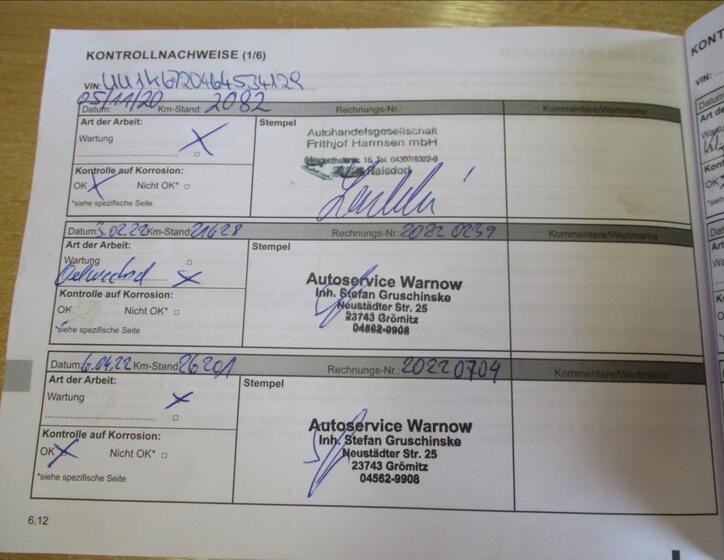 KONTROLLNACHWEISE (1/6)
VIN:
05/11/20 2082
Datum: Km-Stand: Rechnungs-Nr.: Kommentare/Wertmarke
Art der Arbeit: Stempel
Wartung X
Autohandelsgesellschaft
Frithjof Harmsen mbH
16, Tel. 04307/8322-0
Raisdorf
Kontrolle auf Korrosion:
OK X Nicht OK*
*siehe spezifische Seite
Datum: 3.02.22 Km-Stand: 21628 Rechnungs-Nr. 2022 0239 Kommentare/Wertmarke
Art der Arbeit: Stempel
Wartung
Oelwechsel X
Autoservice Warnow
Inh. Stefan Gruschinske
Neustädter Str. 25
23743 Grömitz
04562-9908
Kontrolle auf Korrosion:
OK Nicht OK*
*siehe spezifische Seite
Datum: 6.04.22 Km-Stand: 26201 Rechnungs-Nr.: 20220704 Kommentare/Wertmarke
Art der Arbeit: Stempel
Wartung X
Autoservice Warnow
Inh. Stefan Gruschinske
Neustädter Str. 25
23743 Grömitz
04562-9908
Kontrolle auf Korrosion:
OK X Nicht OK*
*siehe spezifische Seite
6.12
KONT
VIN:
Datum
Art der